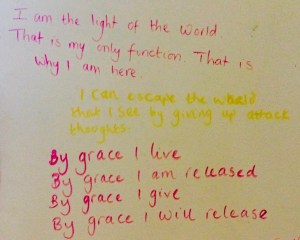 I am the light of the world
That is my only function. That is
why I am here.
I can escape the world
that i see by giving up attack
thoughts.
By grace I live
By grace I am released
By grace I give
By grace I will release